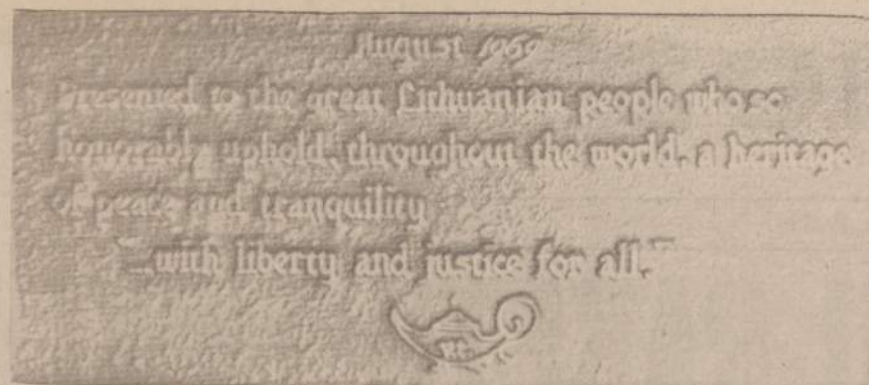 August 1969
Presented to the great Lithuanian people who so
honorably uphold, throughout the world, a heritage
of peace and tranquility
"...with liberty and justice for all."